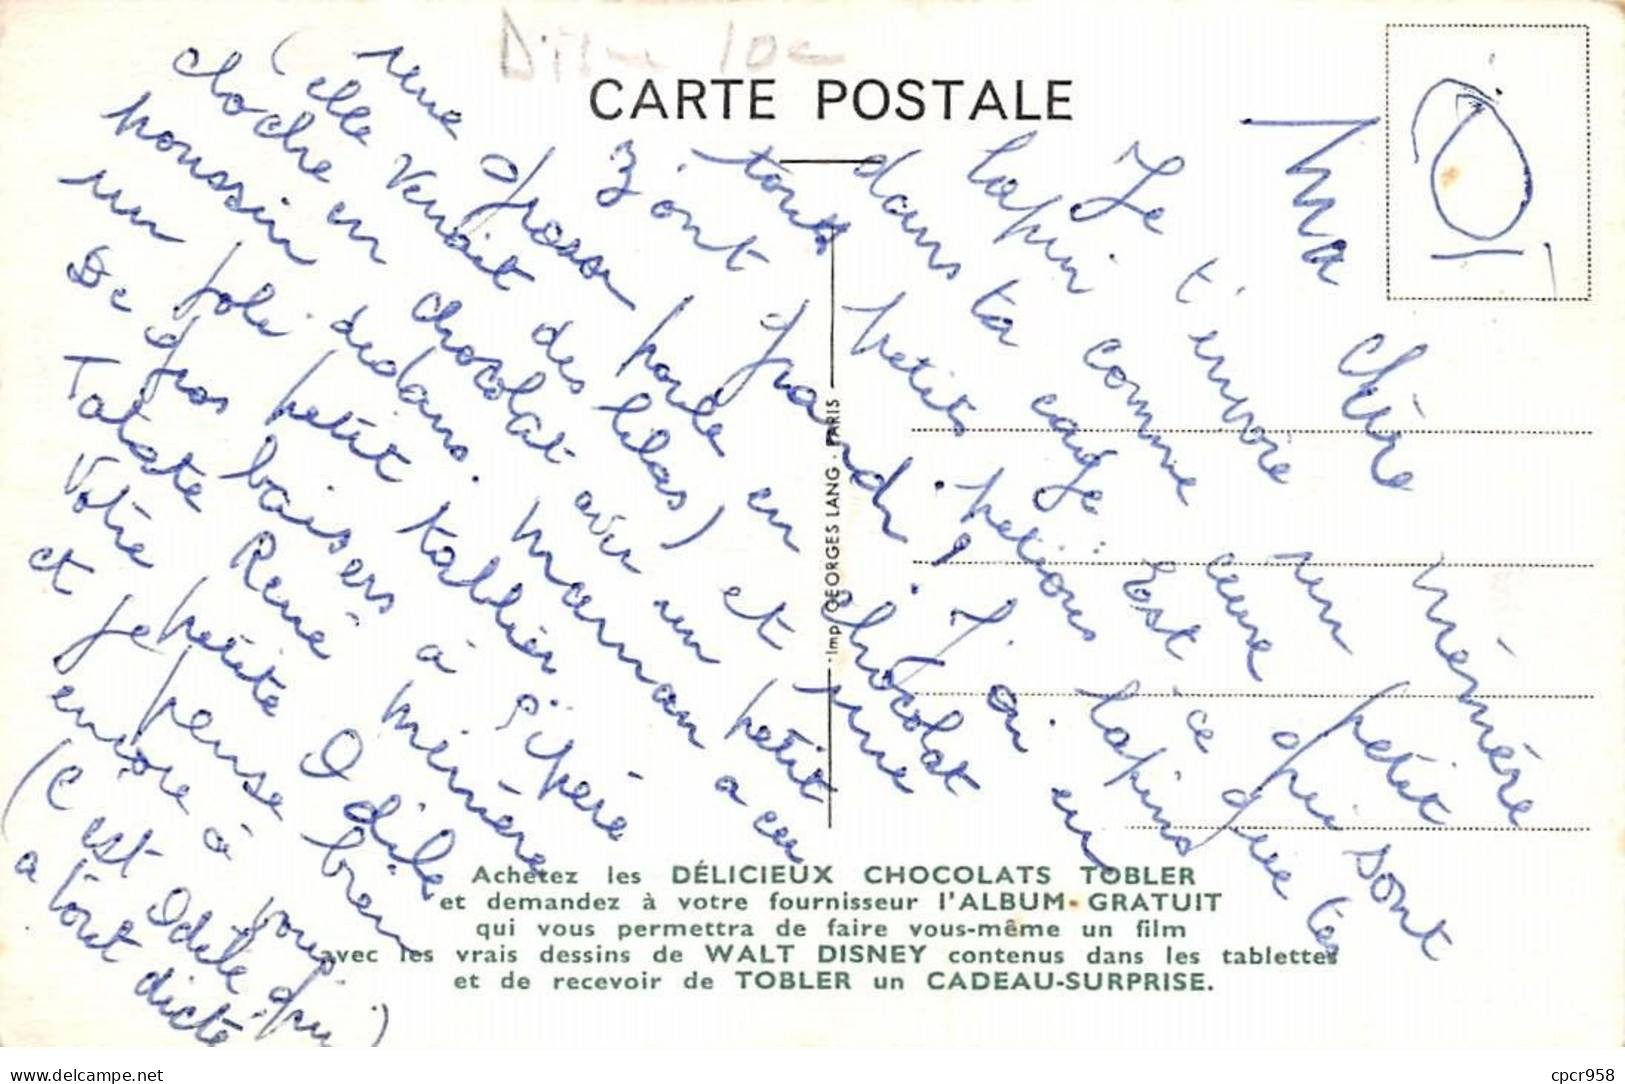 Disney 10c
CARTE POSTALE
Ma chère mémère
Je t'envoie un petit
lapin comme ceux qui sont
dans ta cage. Est ce que tes
tous petits petious lapins
z'ont grandi ! J'ai eu
une grosse poule en chocolat
(elle venait des lilas) et une
cloche en chocolat avec un petit
poussin dedans. Maman a eu
un joli petit tablier
De gros baisers à pépère
Tatate René à mémère
Votre petite Odile
et je pense bien
encore à vous.
(C'est Odile qui
a tout dicté)
Imp. GEORGES LANG - PARIS
Achetez les DÉLICIEUX CHOCOLATS TOBLER
et demandez à votre fournisseur l'ALBUM-GRATUIT
qui vous permettra de faire vous-même un film
avec les vrais dessins de WALT DISNEY contenus dans les tablettes
et de recevoir de TOBLER un CADEAU-SURPRISE.
www.delcampe.net
cpcr958